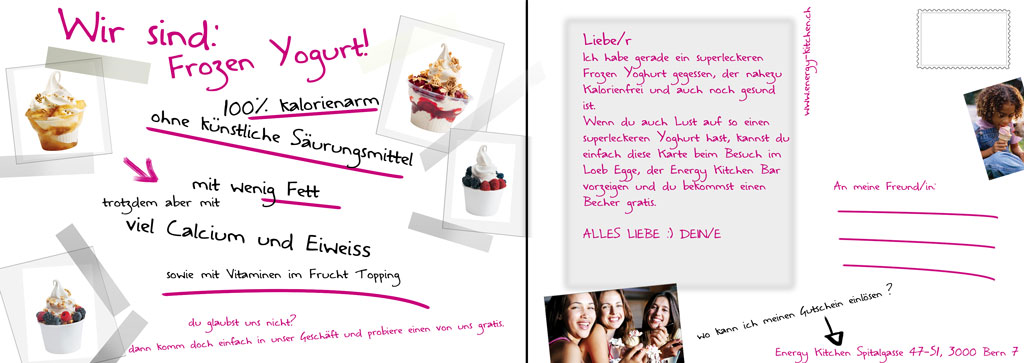 Wir sind:
Frozen Yogurt!
100% kalorienarm
ohne künstliche Säurungsmittel
mit wenig Fett
trotzdem aber mit
viel Calcium und Eiweiss
sowie mit Vitaminen im Frucht Topping
du glaubst uns nicht?
dann komm doch einfach in unser Geschäft und probiere einen von uns gratis.
Liebe/r
Ich habe gerade ein superleckeren
Frozen Yoghurt gegessen, der nahezu
Kalorienfrei und auch noch gesund
ist.
Wenn du auch Lust auf so einen
superleckeren Yoghurt hast, kannst du
einfach diese Karte beim Besuch im
Loeb Egge, der Energy Kitchen Bar
vorzeigen und du bekommst einen
Becher gratis.
ALLES LIEBE :) DEIN/E
www.energy-kitchen.ch
An meine Freund/in:
wo kann ich meinen Gutschein einlösen ?
Energy Kitchen Spitalgasse 47-51, 3000 Bern 7